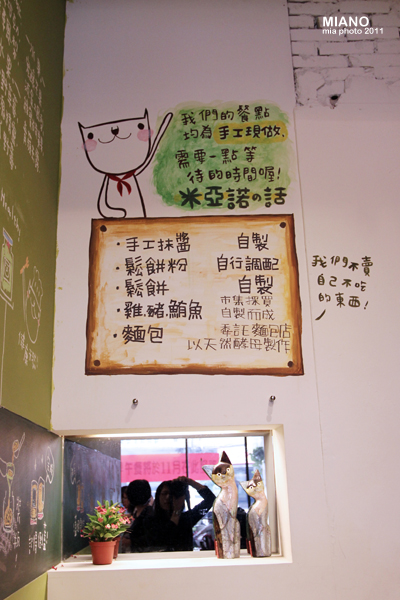 MIANO
mia photo 2011
我們的餐點
均為手工現做.
需要一點等
待的時間喔!
米亞諾の話
・手工抹醬 自製
・鬆餅粉 自行調配
・鬆餅 自製
・雞.豬.鮪魚 市集採買
自製而成
・麵包 委託麵包店
以天然酵母製作
我們不賣
自己不吃
的東西!